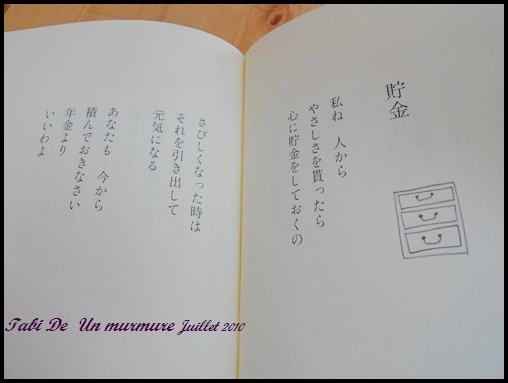 貯金
私ね 人から
やさしさを貰ったら
心に貯金をしておくの
さびしくなった時は
それを引き出して
元気になる
あなたも 今から
積んでおきなさい
年金より
いいわよ
Tabi De Un murmure Juillet 2010